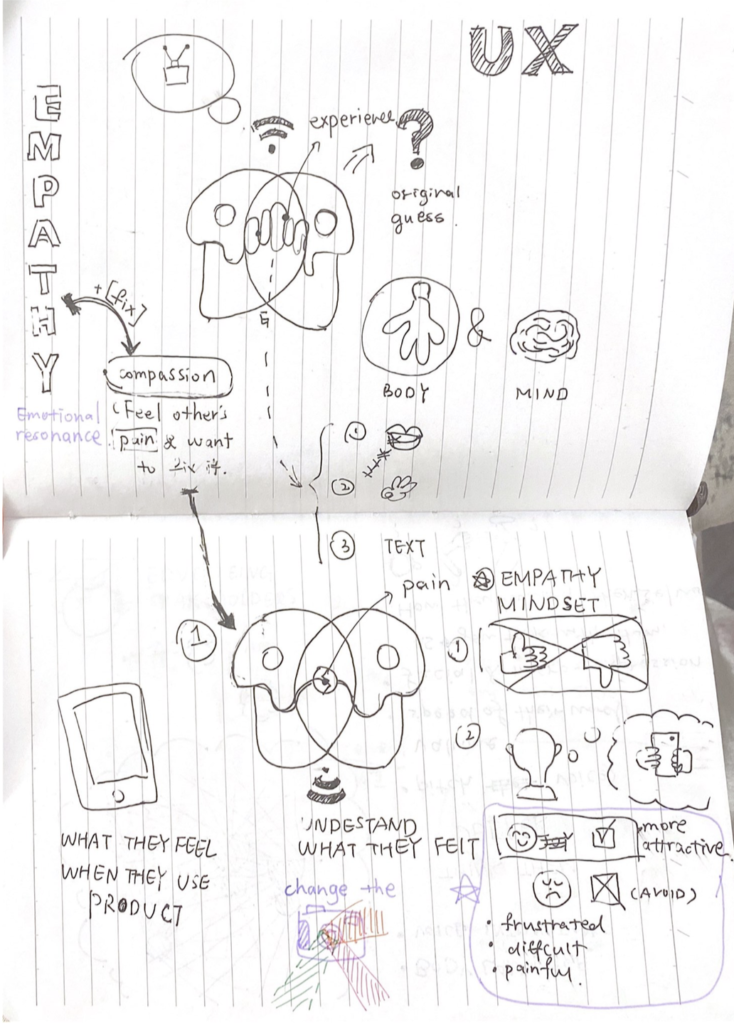 UX
EMPATHY
experience
?
original
guess.
+ [fix]
compassion
Emotional
resonance
(Feel other's
pain & want
to fix it.
&
BODY
MIND
①
②
③ TEXT
pain
EMPATHY
MINDSET
①
1
②
WHAT THEY FEEL
WHEN THEY USE
PRODUCT
UNDESTAND
WHAT THEY FELT
change the
more
attractive.
(AVOID)
• frustrated
• diffcult
• painful.